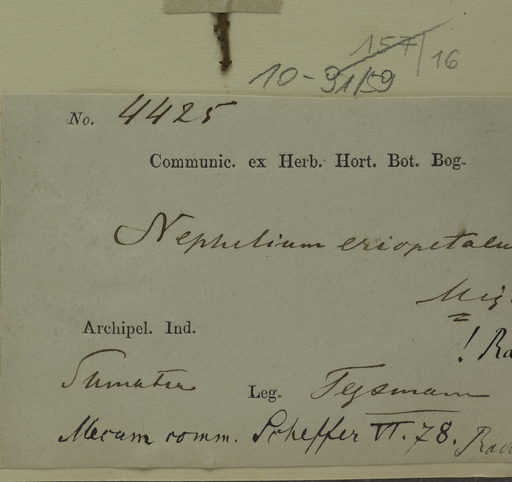 157/16
10-91/59
No. 4425
Communic. ex Herb. Hort. Bot. Bog.
Nephelium eriopetalu
Miq
! Ra
Archipel. Ind.
Sumatra Leg. Teysmann
Mecum comm. Scheffer VI. 78. Rad